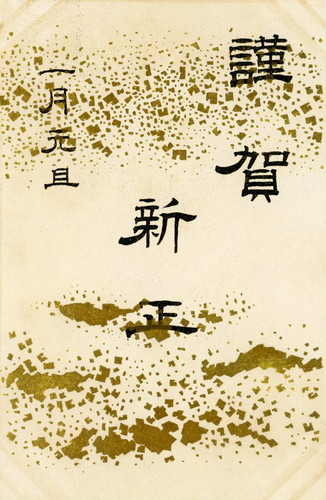 謹賀
新正
一月元旦